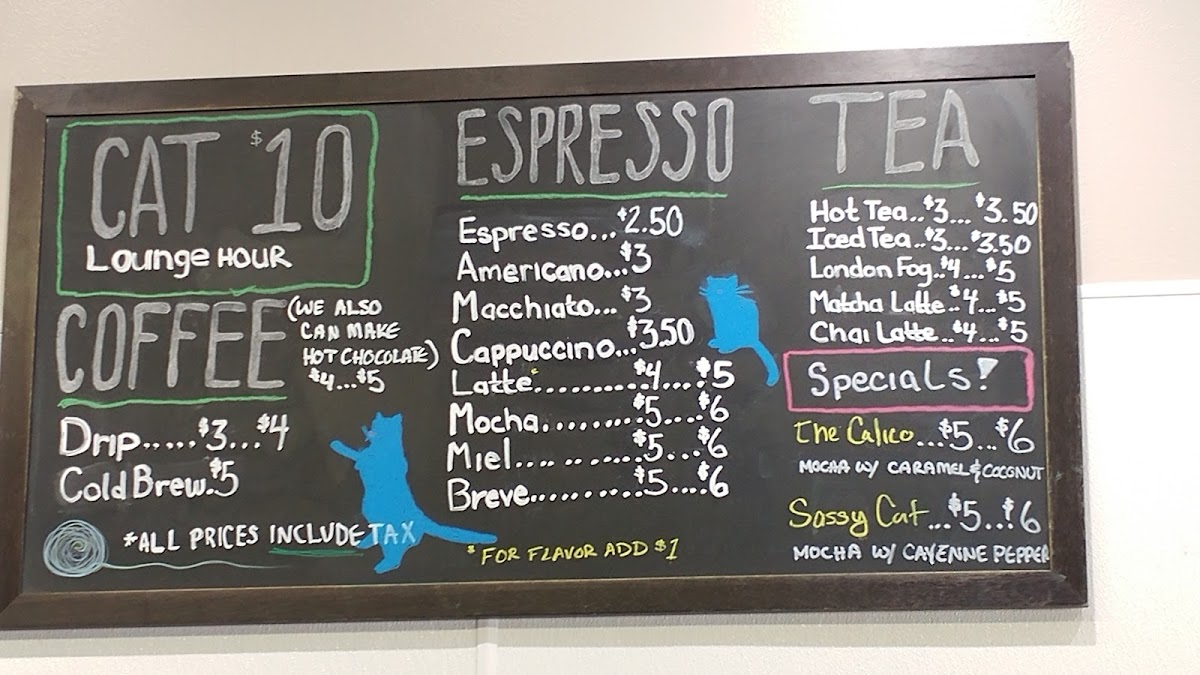 CAT $10
Lounge HOUR
COFFEE
(WE ALSO
CAN MAKE
HOT CHOCOLATE)
$4...$5
Drip......$3...$4
Cold Brew.$5
*ALL PRICES INCLUDE TAX
ESPRESSO
Espresso...$2.50
Americano...$3
Macchiato...$3
Cappuccino...$3.50
Latte*..........$4....$5
Mocha.........$5....$6
Miel.............$5....$6
Breve..........$5....$6
*FOR FLAVOR ADD $1
TEA
Hot Tea..$3...$3.50
Iced Tea..$3...$3.50
London Fog..$4...$5
Matcha Latte..$4...$5
Chai Latte..$4...$5
Specials!
The Calico...$5...$6
MOCHA W/ CARAMEL & COCONUT
Sassy Cat...$5...$6
MOCHA W/ CAYENNE PEPPER